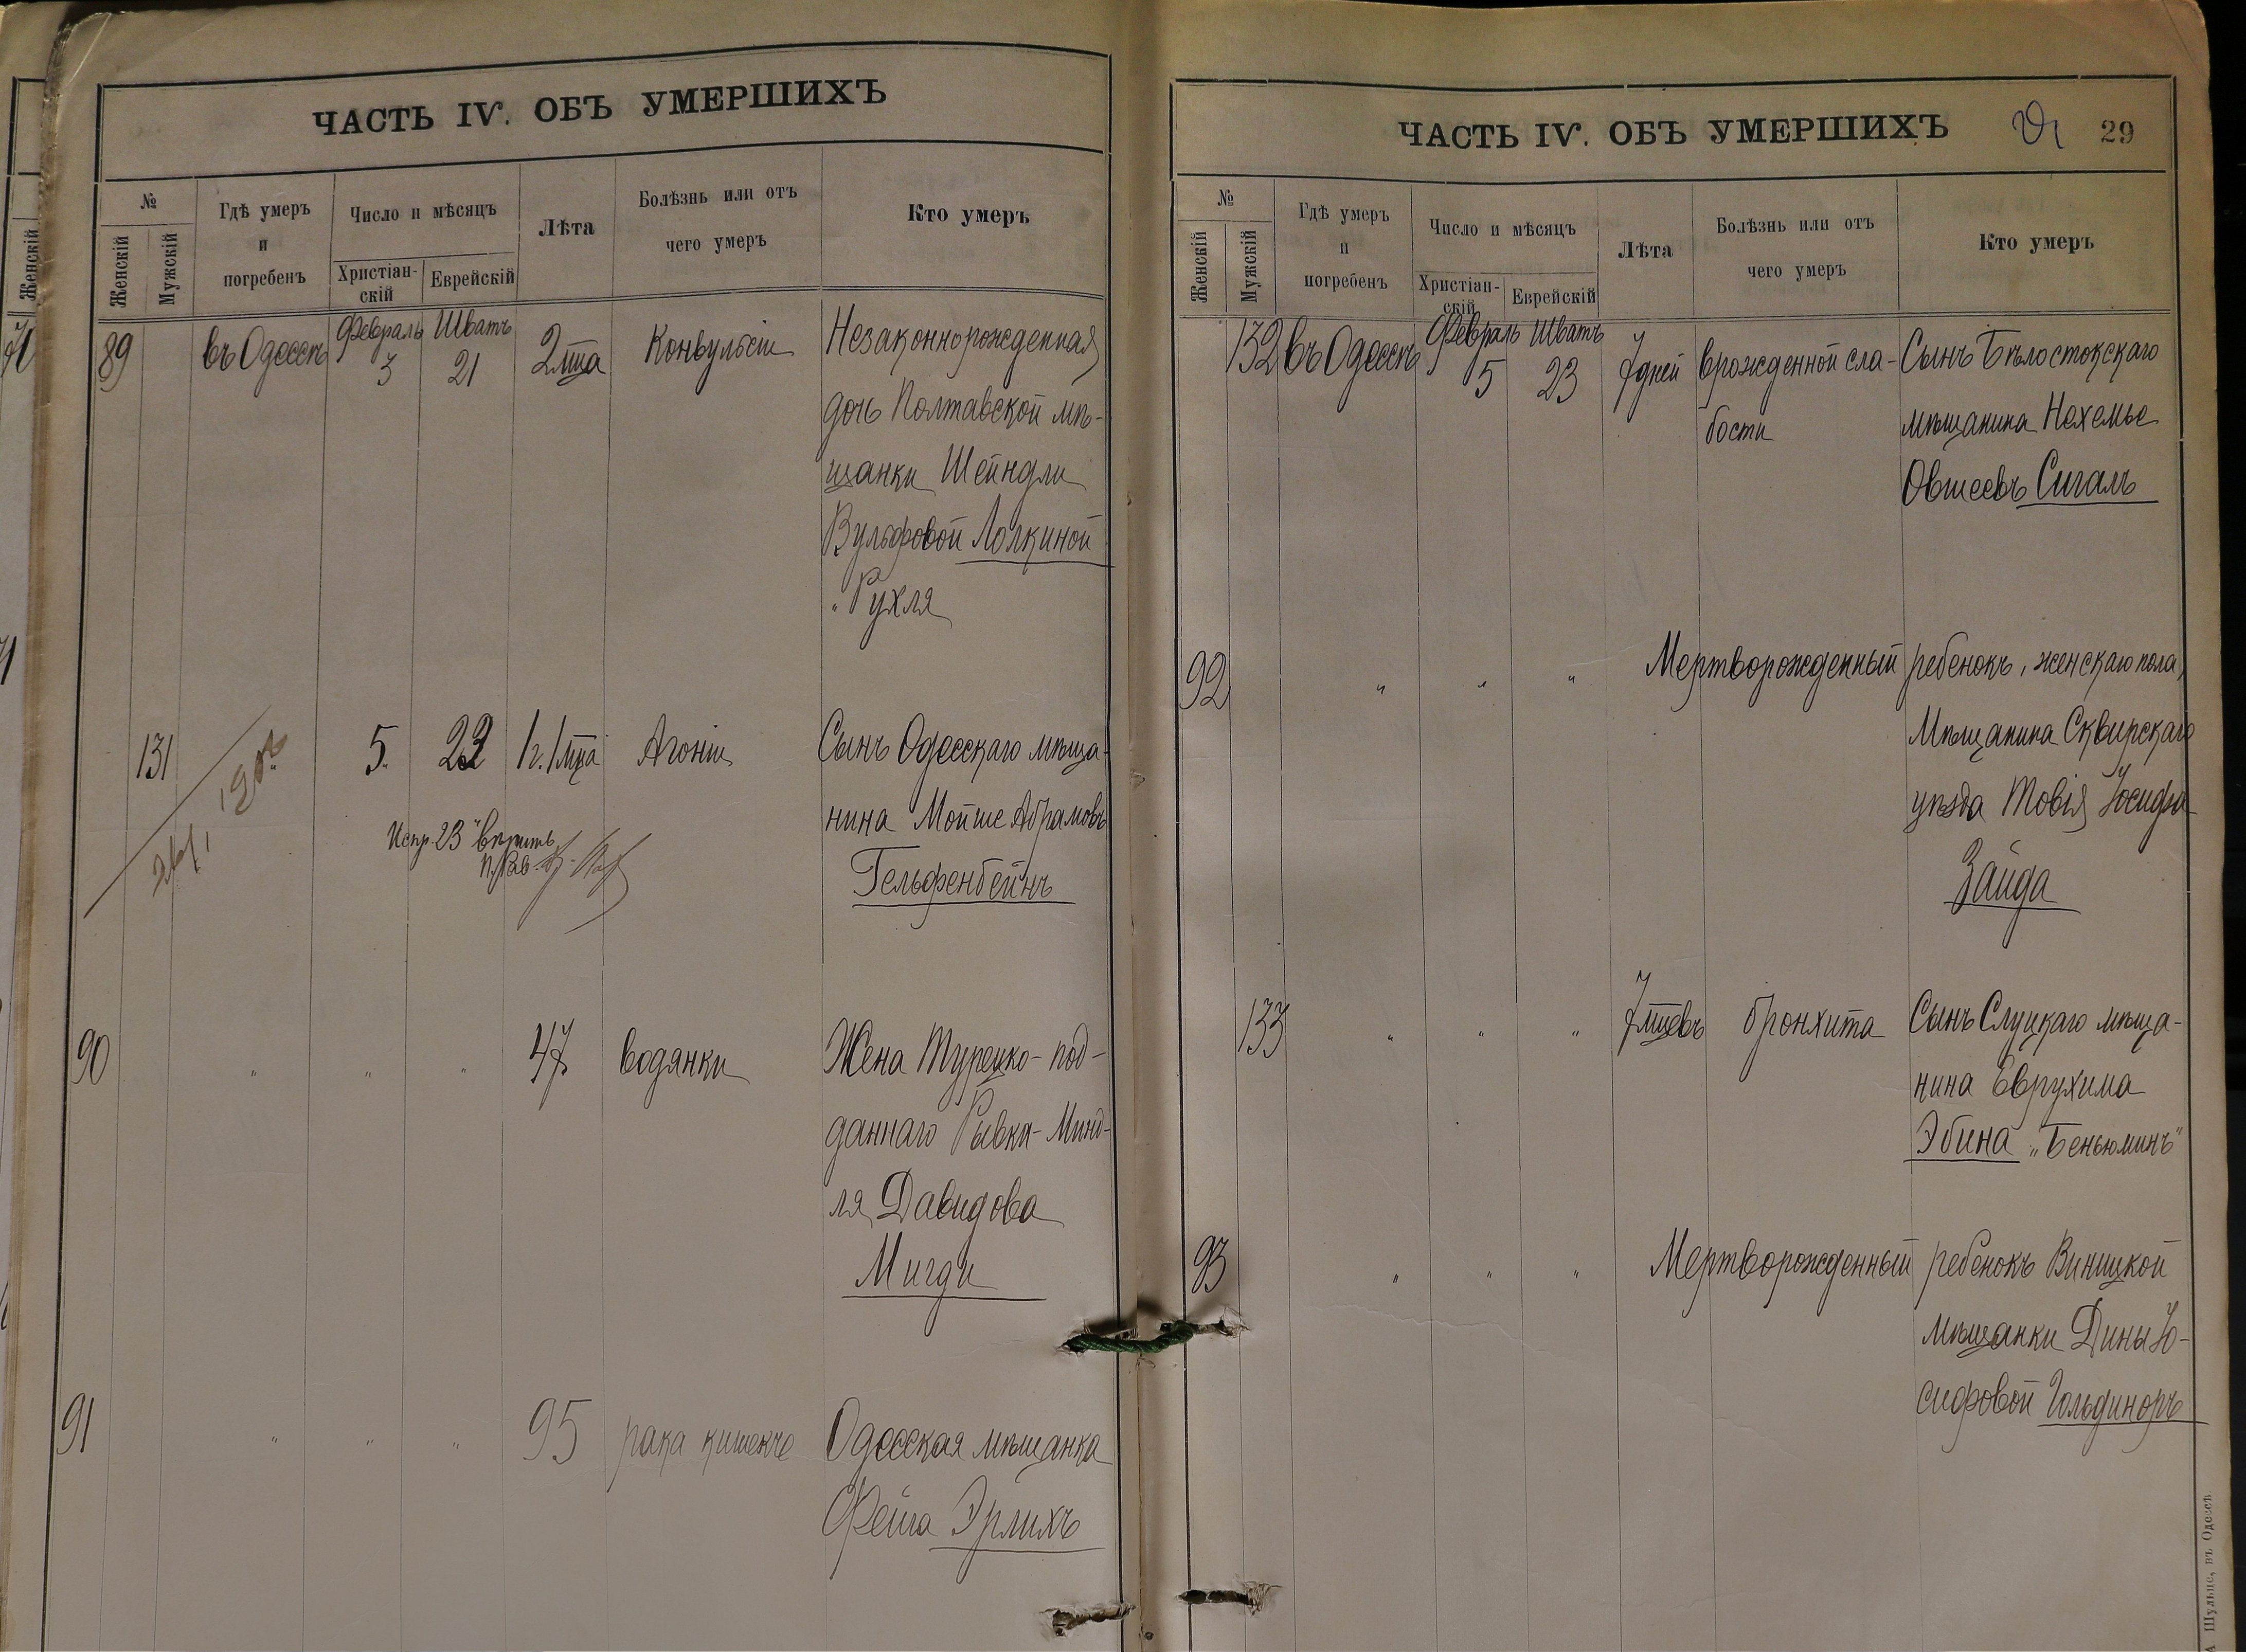 ЧАСТЬ IV. ОБЪ УМЕРШИХЪ
№
Женскій
Мужскій
Гдѣ умеръ
и
погребенъ
Число и мѣсяцъ
Христіан-
скій
Еврейскій
Лѣта
Болѣзнь или отъ
чего умеръ
Кто умеръ
89 въ Одессѣ Февраль 3 Шватъ 21 2 мца Конвульсіи Незаконнорожденная
дочь Полтавской мѣ-
щанки Шейндли
Вульфовой Лолкиной
"Рухля
131 5. 23 1 г. 1 мца Агоніи Сынъ Одесскаго мѣща-
нина Мойше Абрамовъ
Гельфенбейнъ
Испр. 23 вѣрить
90 " " " 47 водянки Жена Турецко-под-
даннаго Рывка-Минд-
ля Давидова
Мигди
91 " " " 95 рака кишекъ Одесская мѣщанка
Фейга Эрлихъ
ЧАСТЬ IV. ОБЪ УМЕРШИХЪ 29
№
Женскій
Мужскій
Гдѣ умеръ
и
погребенъ
Число и мѣсяцъ
Христіан-
скій
Еврейскій
Лѣта
Болѣзнь или отъ
чего умеръ
Кто умеръ
132 въ Одессѣ Февраль 5 Шватъ 23 7 дней врожденной сла- Сынъ Бѣлостокскаго
бости мѣщанина Нехемье
Овшеевъ Сигалъ
92 " " " Мертворожденный ребенокъ, женскаго пола,
Мѣщанина Сквирскаго
уѣзда Товія Іосифа
Зайда
133 " " " 7 мцевъ бронхита Сынъ Слуцкаго мѣща-
нина Еврухима
Эбина "Беньюминъ"
93 " " " Мертворожденный ребенокъ Виницкой
мѣщанки Дины Іо-
сифовой Гольдиноръ
Шульце, въ Одессѣ